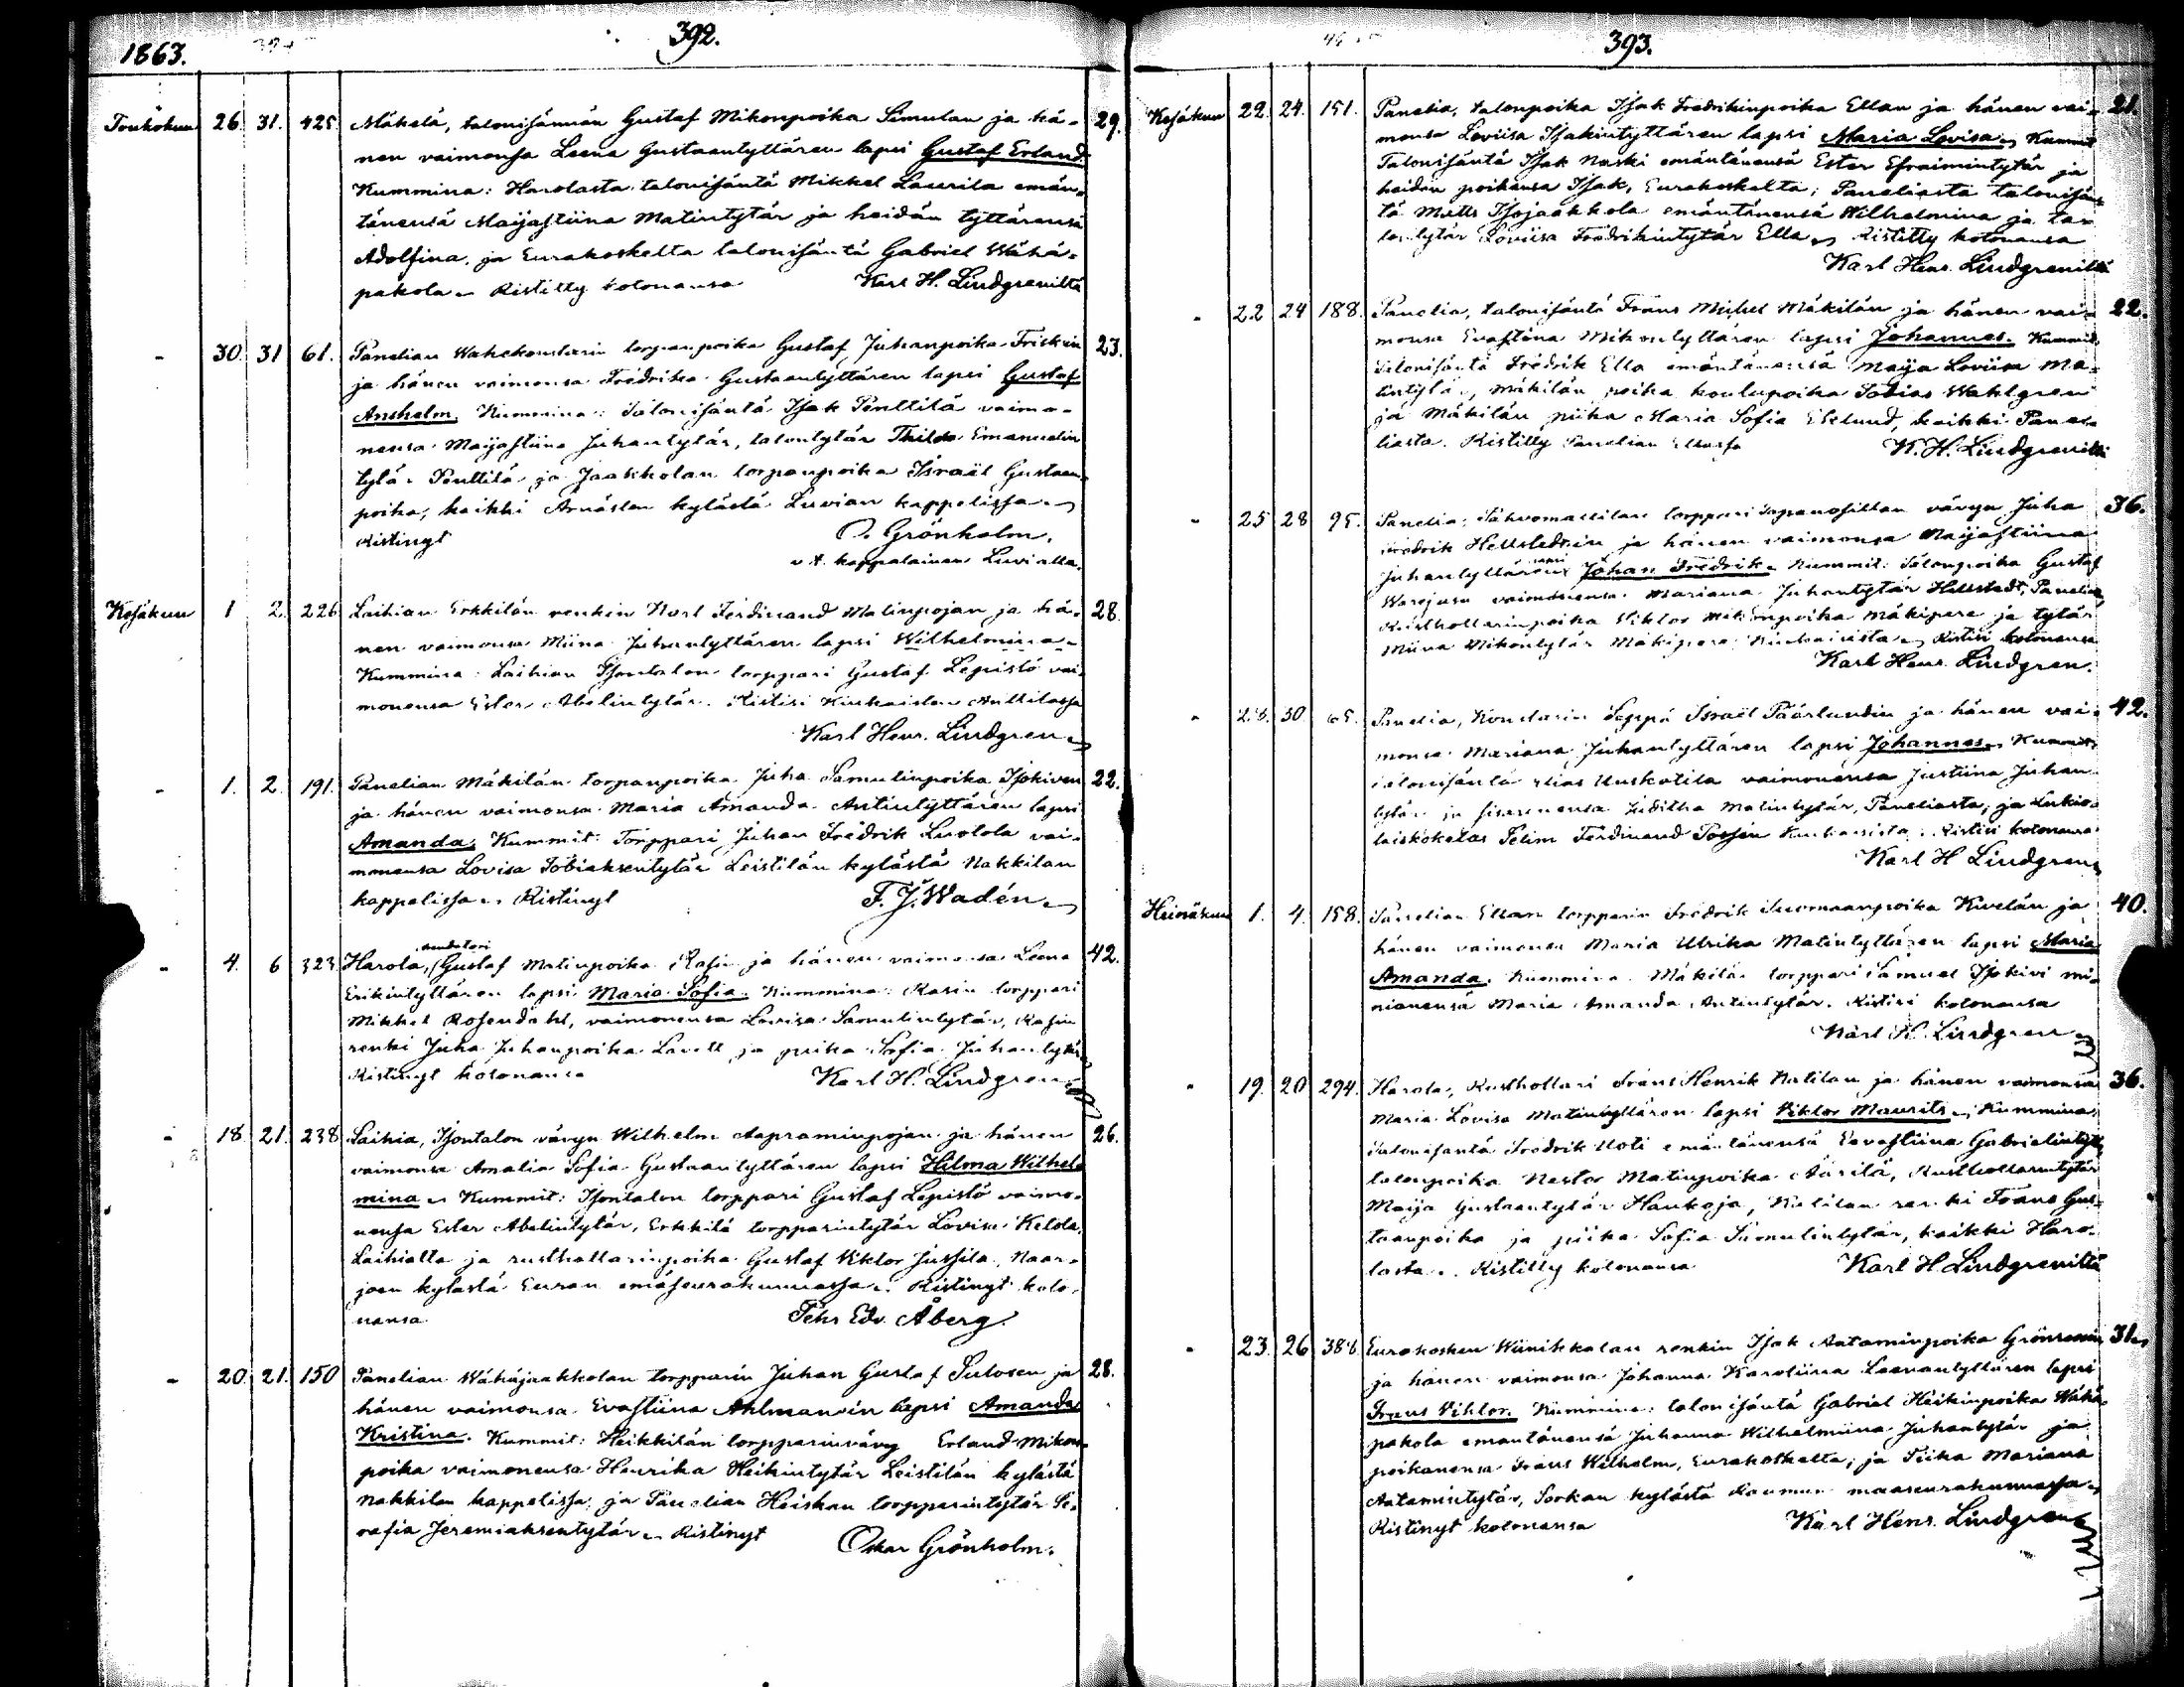 1863.
392.
Toukokuu 26. 31. 425 Mäkelä, talonisännän Gustaf Mikonpoika Simulan ja hä- 29.
nen vaimonsa Leena Gustaantyttären lapsi Gustaf Erland
Kummina: Harolasta talonisäntä Mikkel Laurila emän-
tänensä Maijastiina Matintytär ja heidän tyttärensä
Adolfina, ja Eurakoskelta talonisäntä Gabriel Wähä-
pakola. Ristitty kotonansa Karl H. Lindgreniltä
- 30. 31 61. Panelian Wahekonstarin torpanpoika Gustaf Juhanpoika Friskin 23.
ja hänen vaimonsa Fredrika Gustaantyttären lapsi Gustaf
Anshelm. Kummina: Talonisäntä Isak Penttilä vaimo-
nensa Maijastiina Juhantytär, talontytär Thilda Emanuelin
tytär Penttilä ja Jaakkolan torpanpoika Israël Gustaan-
poika, kaikki kylästä Luvian kappelissa.
Ristinyt O. Grönholm.
v.t. kappalainen Luvialla.
Kesäkuu 1 2. 226 Laihian Erkkilän renkin Karl Ferdinand Matinpojan ja hä- 28.
nen vaimonsa Miina Juhantyttären lapsi Wilhelmina.
Kummina: Laihian Isontalon torppari Gustaf Lepistö vai-
monensa Ester Abelintytär. Ristisi Kiukaisten Anttilassa
Karl Henr. Lindgren.
- 1. 2. 191. Panelian Mäkilän torpanpoika Juha Samulinpoika Isokiven 22.
ja hänen vaimonsa Maria Amanda Antintyttären lapsi
Amanda. Kummit: Torppari Juhan Fredrik Luolola vai-
monensa Lovisa Tobiaksentytär Leistilän kylästä Nakkilan
kappelissa. Ristinyt F. J. Wadén.
arentatori
- 4. 6 323 Harola, Gustaf Matinpoika Rasin ja hänen vaimonsa Leena 42.
Erikintyttären lapsi Maria Sofia. Kummina: Rasin torppari
Mikkel Rosendahl, vaimonensa Lovisa Samulintytär, Rasin
renki Juha Juhanpoika Lavell ja piika Sofia Juhantytär
Ristinyt kotonansa Karl H. Lindgren
- 18. 21. 238 Laihia, Isontalon vävyn Wilhelm Aapraminpojan ja hänen 26.
vaimonsa Amalia Sofia Gustaantyttären lapsi Hilma Wilhel-
mina. Kummit: Isontalon torppari Gustaf Lepistö vaimo-
nensa Ester Abelintytär, Erkkilä torpparintytär Lovisa Kelola,
Laihialta ja rusthollarinpoika Gustaf Viktor Jussila, Naar-
joen kylästä Euran emäseurakunnassa. Ristinyt koto-
nansa. Pehr Edv. Åberg.
- 20. 21. 150 Panelian Wähäjaakkolan torpparin Juhan Gustaf Sulosen ja 28.
hänen vaimonsa Evastiina Ahlmanin lapsi Amanda
Kristina. Kummit: Heikkilän torpparinvävy Erland Mikon-
poika vaimonensa Henrika Heikintytär Leistilän kylästä
Nakkilan kappelissa, ja Panelian Heiskan torpparintytär Se-
rafia Jeremiaksentytär. Ristinyt Oskar Grönholm.
393.
Kesäkuu 22. 24. 151. Panelia, talonpoika Isak Fredrikinpoika Ellan ja hänen vai- 21.
monsa Loviisa Isakintyttären lapsi Maria Lovisa. Kummit
Talonisäntä Isak Naski emäntänensä Ester Efraimintytär ja
heidän poikansa Isak, Eurakoskelta; Paneliasta talonisän-
tä Matts Isojaakkola emäntänensä Wilhelmina ja ta-
lontytär Loviisa Fredrikintytär Ella. Ristitty kotonansa
Karl Henr. Lindgreniltä
- 22 24 188. Panelia, talonisäntä Frans Mikkel Mäkilän ja hänen vai- 22.
monsa Evastina Mikontyttären lapsi Johannes. Kummit.
Talonisäntä Fredrik Ella emäntänensä Maija Loviisa Ma-
tintytär, Mäkilän poika koulupoika Tobias Wahlgren
ja Mäkilän piika Maria Sofia Eklund, kaikki Pane-
liasta. Ristitty Panelian Ellassa K. H. Lindgreniltä
- 25 28 95. Panelia, torppari vävyn Juha 36.
Fredrik Hellstedtin ja hänen vaimonsa Maijastiina
Juhantyttären Johan Fredrik. Kummit: Talonpoika Gustaf
Warejusu vaimonensa Mariana Juhantytär Hellstedt, Panelia,
Rusthollarinpoika Viktor Mikonpoika Mäkipere ja tytär
Miina Mikontytär Mäkipere Kiukaisista. Ristisi kotonansa
Karl Henr. Lindgren.
- 28. 30. 65. Panelia, Konstarin Seppä Israël Päärlundin ja hänen vai- 42.
monsa Mariana Juhantyttären lapsi Johannes. Kummit:
Talonisäntä Elias Uuskatila vaimonensa Justiina Juhan-
tytär ja sisarensa Juditha Matintytär, Paneliasta; ja Lukio-
laiskokelas Selim Ferdinand Kiukaisista. Ristisi kotonansa
Karl H Lindgren
Heinäkuu 1. 4. 158. Panelian Ellan torpparin Fredrik Tuomaanpoika Kivelän ja 40.
hänen vaimonsa Maria Ulrika Matintyttären lapsi Maria
Amanda. Kummina. Mäkilän torppari Samuel Isokivi mi-
niänensä Maria Amanda Antintytär. Ristisi kotonansa
Karl H. Lindgren
- 19. 20 294. Harola, Rusthollari Frans Henrik Natilan ja hänen vaimonsa 36.
Maria Lovisa Matintyttären lapsi Viktor Maurits. Kummina
Talonisäntä Fredrik Uoti emäntänensä Eevastiina Gabrielintytär
talonpoika Nestor Matinpoika Äärilä, Rusthollarintytär
Maija Gustaantytär Haukoja, Natilan renki Frans Gus-
taanpoika ja piika Sofia Samulintytär, kaikki Haro-
lasta. Ristitty kotonansa Karl H. Lindgreniltä
- 23. 26 388. Eurakosken Wiinikkalan renkin Isak Aataminpoika Grönroosin 31.
ja hänen vaimonsa Johanna Karoliina Leenantyttären lapsi
Frans Viktor. Kummina: talonisäntä Gabriel Heikinpoika Wähä-
pakola emäntänensä Juhanna Wilhelmiina Juhantytär ja
poikanensa Frans Wilhelm, Eurakoskelta; ja Piika Mariana
Aatamintytär, Sorkan kylästä Rauman maaseurakunnassa.
Ristinyt kotonansa Karl Henr. Lindgren